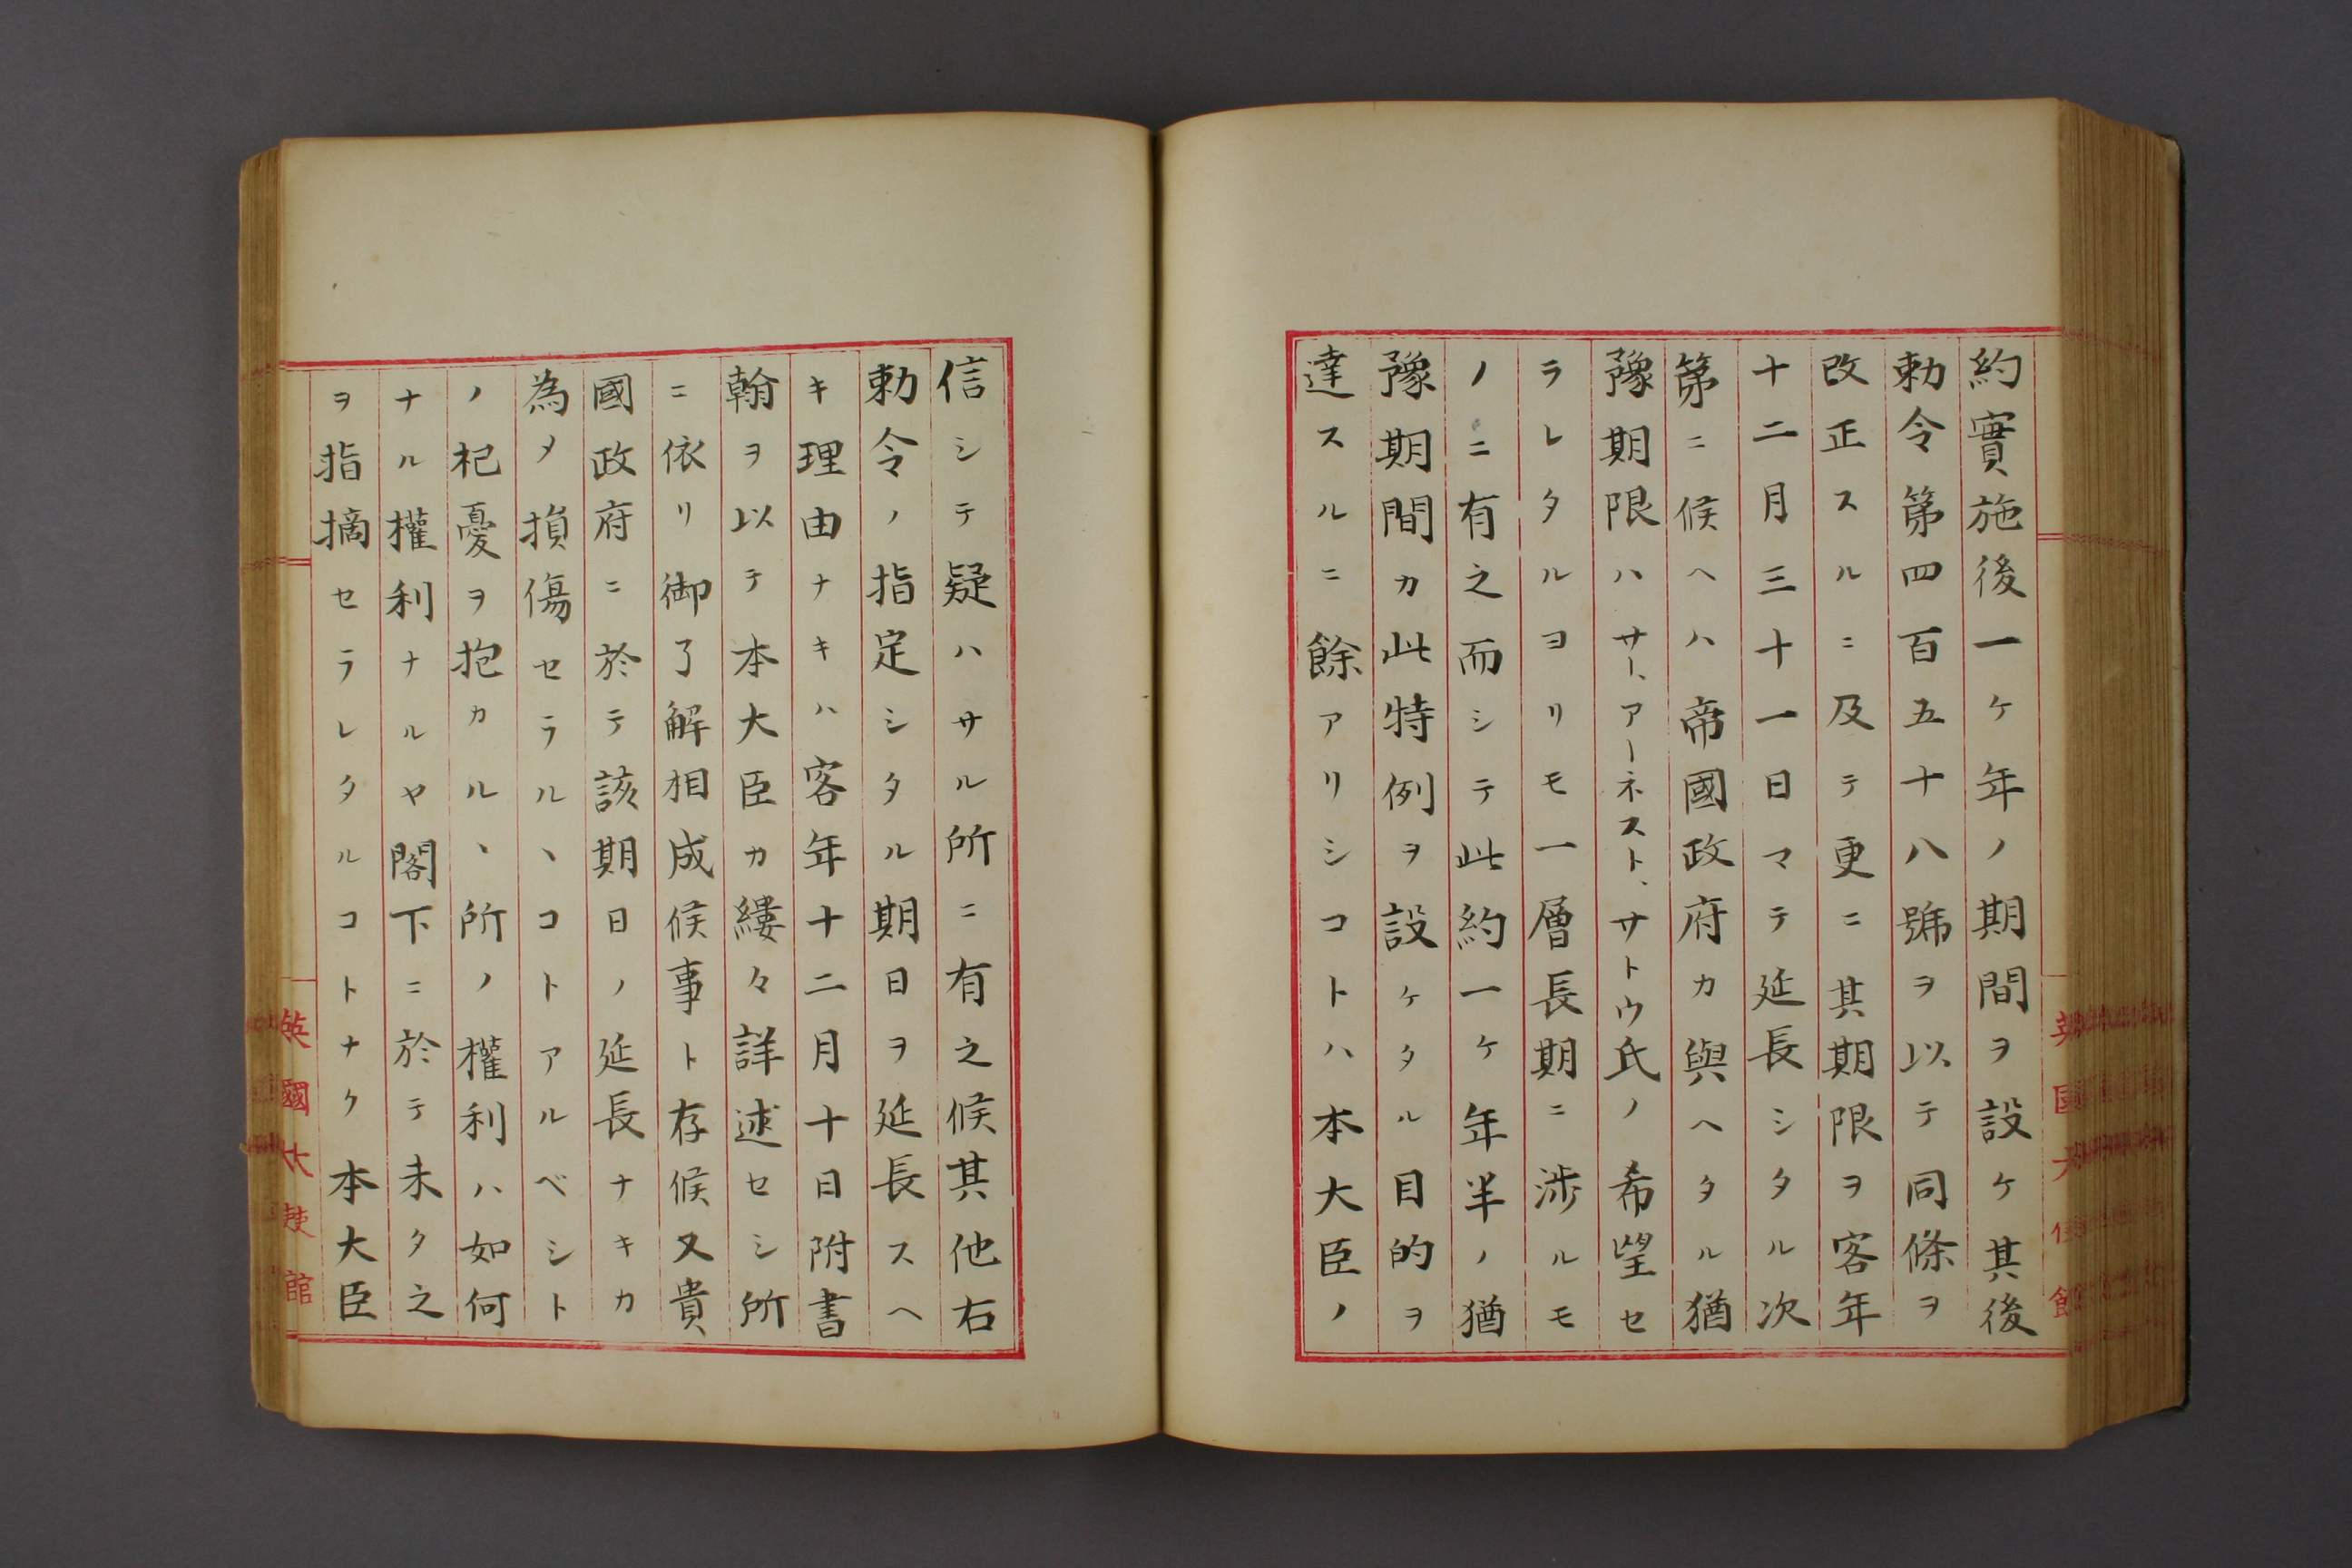 約實施後一ケ年ノ期間ヲ設ケ其後
勅令第四百五十八號ヲ以テ同條ヲ
改正スルニ及テ更ニ其期限ヲ客年
十二月三十一日マテ延長シタル次
第ニ候ヘハ帝國政府カ與ヘタル猶
豫期限ハサー、アーネスト、サトウ氏ノ希望セ
ラレタルヨリモ一層長期ニ渉ルモ
ノニ有之而シテ此約一ケ年半ノ猶
豫期間カ此特例ヲ設ケタル目的ヲ
達スルニ餘アリシコトハ本大臣ノ
英國大使館
信シテ疑ハサル所ニ有之候其他右
勅令ノ指定シタル期日ヲ延長スヘ
キ理由ナキハ客年十二月十日附書
翰ヲ以テ本大臣カ縷々詳述セシ所
ニ依リ御了解相成候事ト存候又貴
國政府ニ於テ該期日ノ延長ナキカ
為メ損傷セラル、コトアルベシト
ノ杞憂ヲ抱カル、所ノ權利ハ如何
ナル權利ナルヤ閣下ニ於テ未タ之
ヲ指摘セラレタルコトナク本大臣
英國大使館